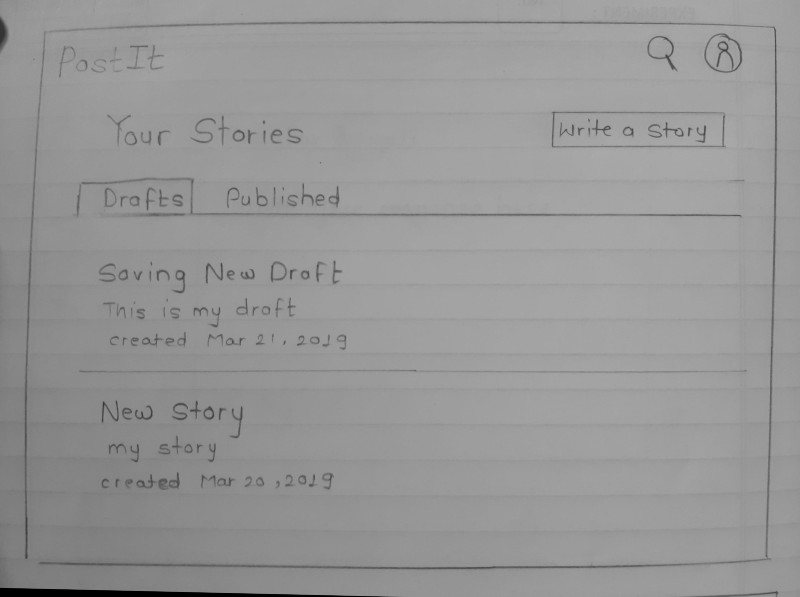 PostIt
Your Stories
Write a Story
Drafts Published
Saving New Draft
This is my draft
created Mar 21, 2019
New Story
my story
created Mar 20, 2019